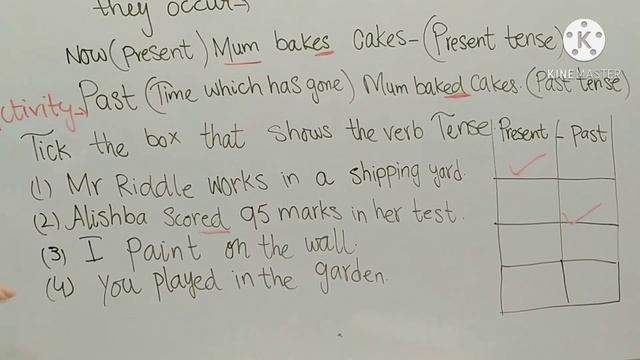 they occur→
Now (Present) Mum bakes cakes – (Present tense)
Past (Time which has gone) Mum baked cakes. (Past tense)
ctivity→
Tick the box that shows the verb Tense Present – Past
(1) Mr Riddle works in a shipping yard.
(2) Alishba Scored 95 marks in her test.
(3) I Paint on the wall.
(4) You played in the garden.
K
KINEMASTER